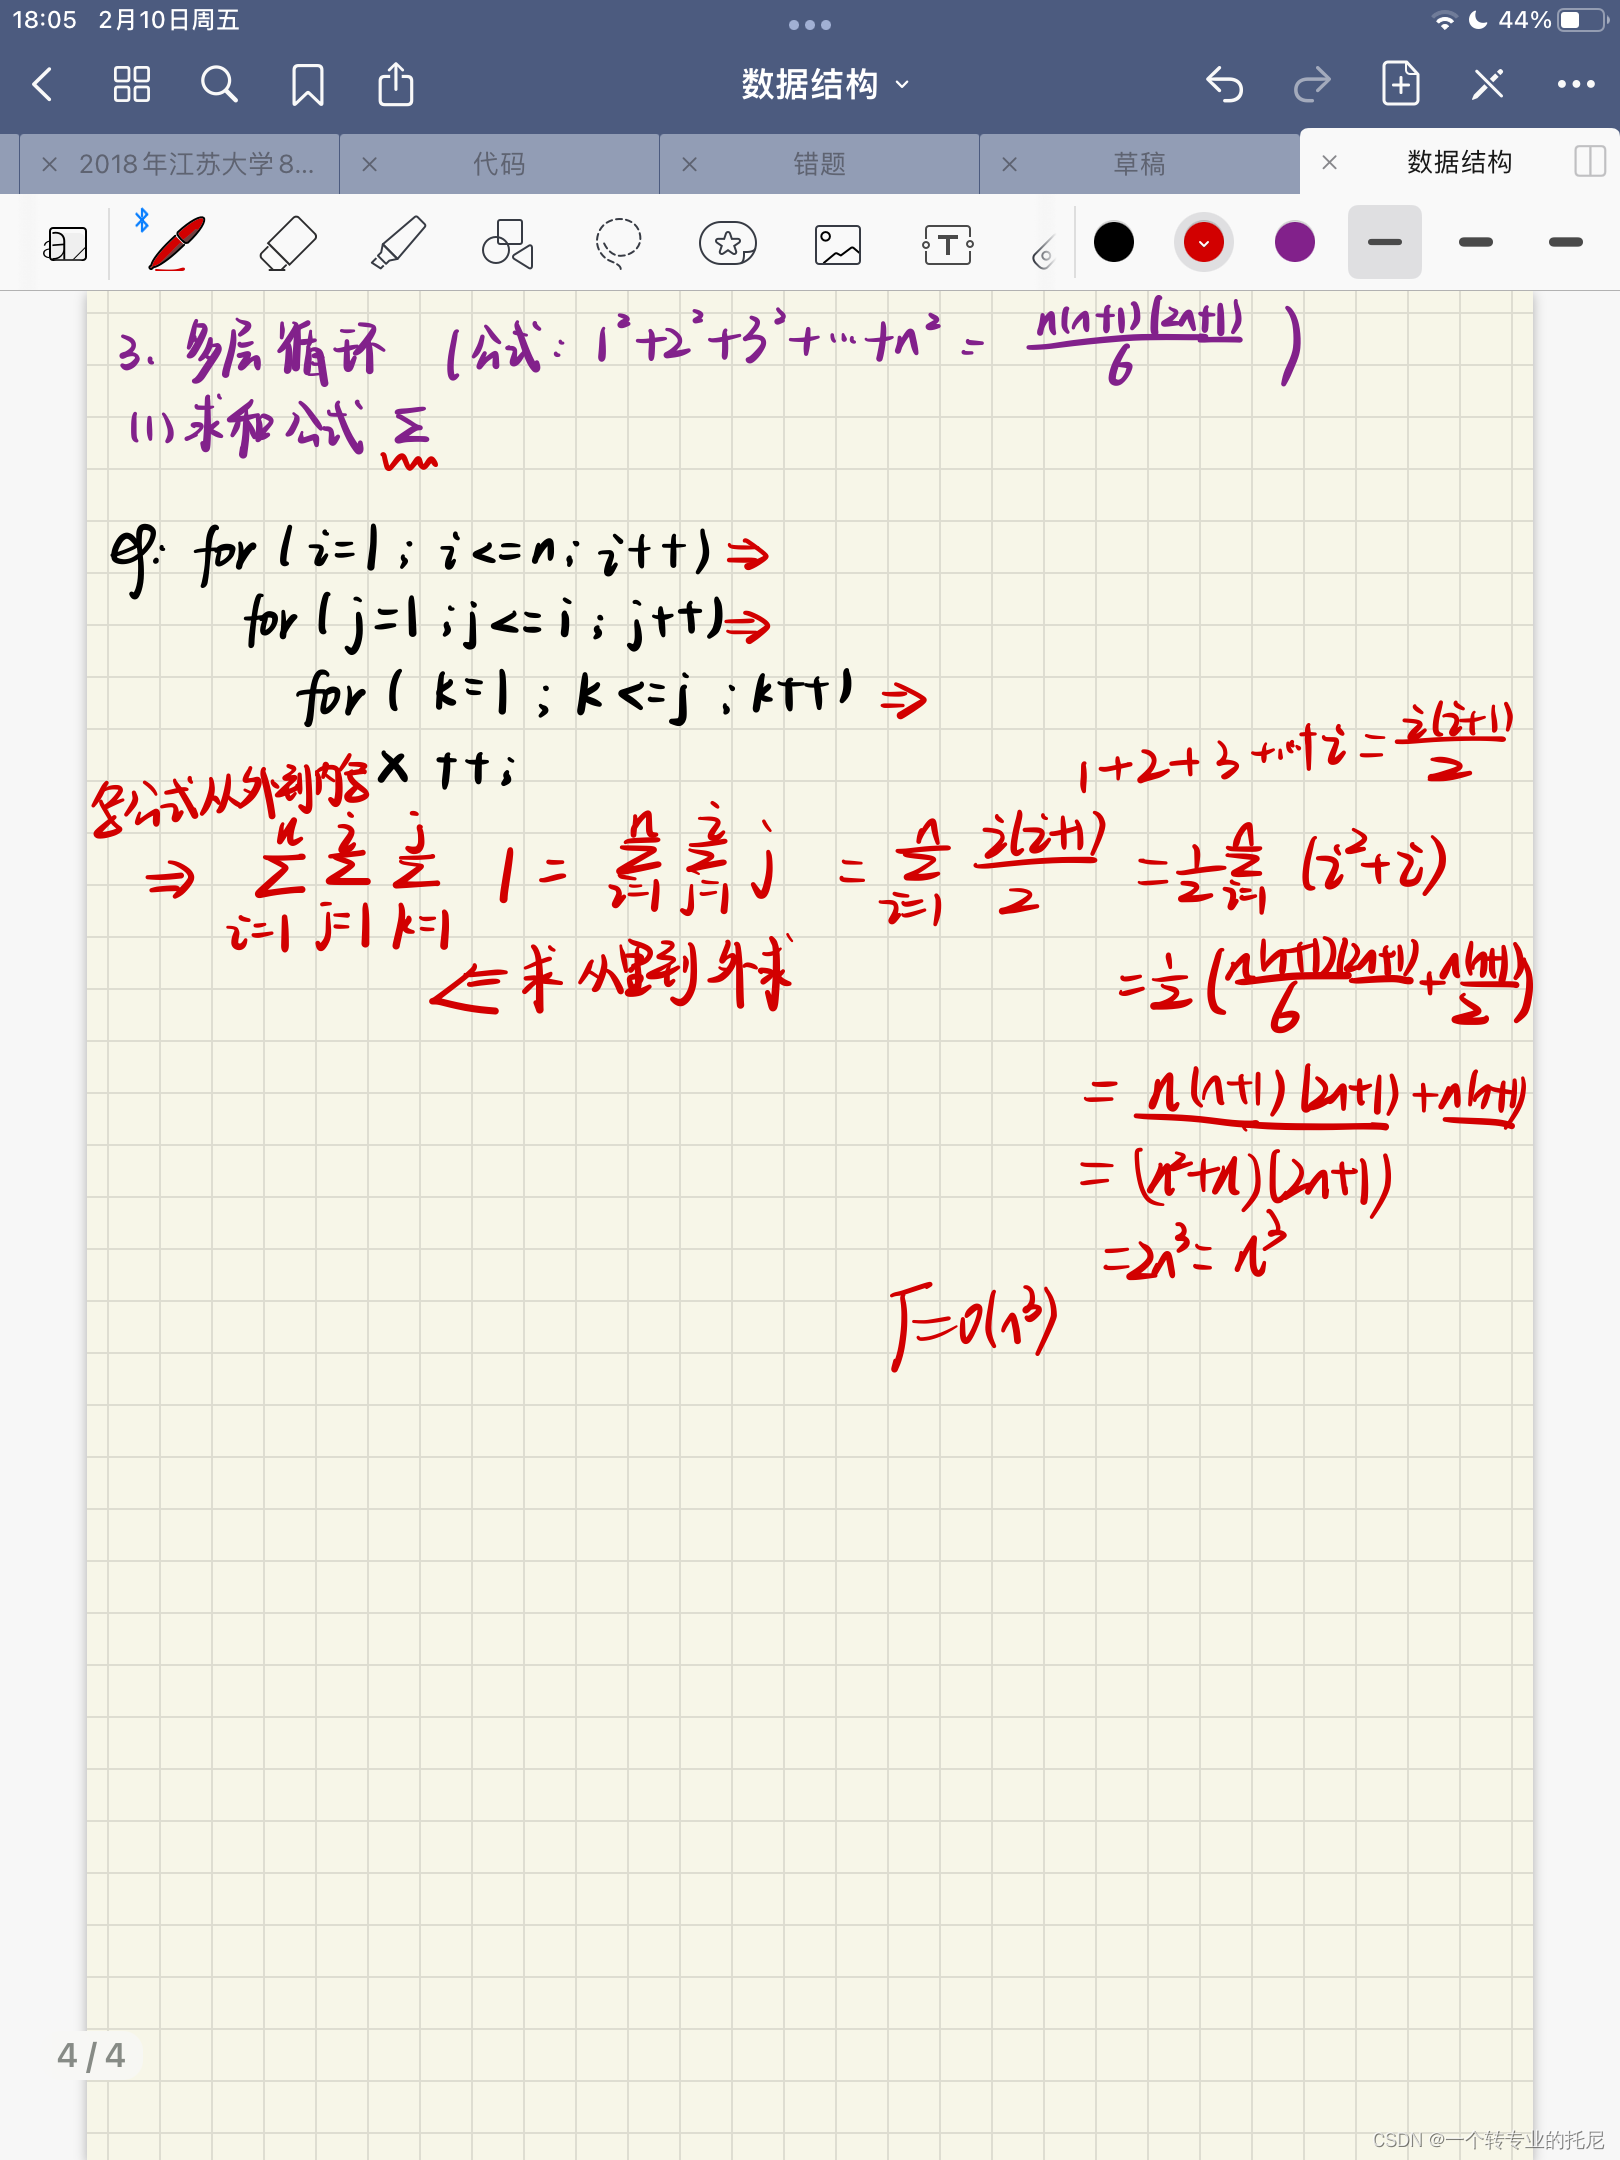 18:05 2月10日周五 44%
数据结构
2018年江苏大学8... 代码 错题 草稿 数据结构
3. 多层循环 (公式: 1²+2²+3²+…+n² = n(n+1)(2n+1)/6 )
(1) 求和公式 Σ
eg: for (i=1; i<=n; i++) ⇒
for (j=1; j<=i; j++) ⇒
for (k=1; k<=j; k++) ⇒
x++;
1+2+3+…+i = i(i+1)/2
写公式从外到内层
⇒ Σ(i=1→n) Σ(j=1→i) Σ(k=1→j) 1 = Σ(i=1→n) Σ(j=1→i) j = Σ(i=1→n) i(i+1)/2 = 1/2 Σ(i=1→n) (i²+i)
⇐ 求从里到外求
= 1/2 (n(n+1)(2n+1)/6 + n(n+1)/2)
= n(n+1)(2n+1) + n(n+1)
= (n²+n)(2n+1)
= 2n³ = n³
T = O(n³)
4 / 4
CSDN @一个转专业的托尼